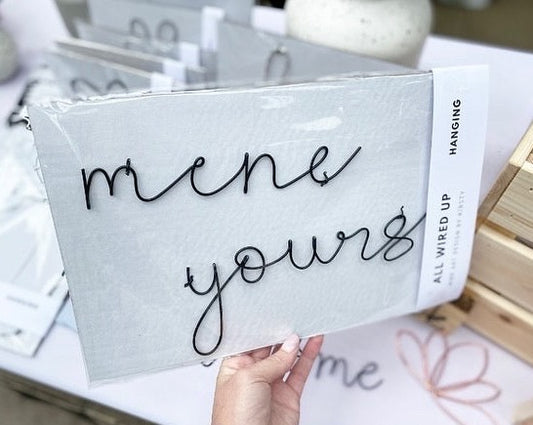 mene
yours
HANGING
ALL WIRED UP
WIRE ART DESIGN BY KIRSTY
me